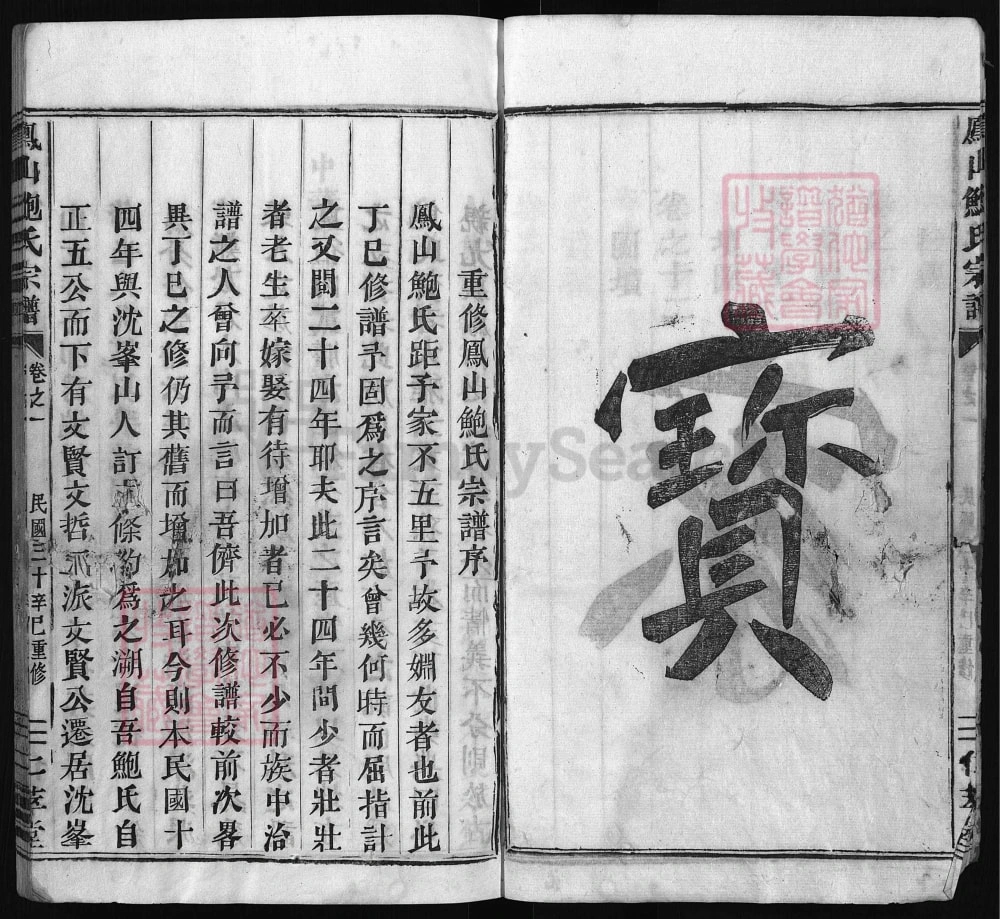 寶
重修鳳山鮑氏宗譜序
鳳山鮑氏距予家不五里予故多姻友者也前此
丁巳修譜予固爲之序言矣曾幾何時而屈指計
之又閱二十四年耶夫此二十四年間少者壯壯
者老生卒嫁娶有待增加者已必不少而族中治
譜之人曾向予而言曰吾儕此次修譜較前次畧
異丁巳之修仍其舊而增加之耳今則本民國十
四年與沈峯山人訂 條約爲之溯自吾鮑氏自
正五公而下有文賢文哲 派文賢公遷居沈峯
鳳山鮑氏宗譜
卷之一
民國三十辛巳重修
鳳山鮑氏宗譜